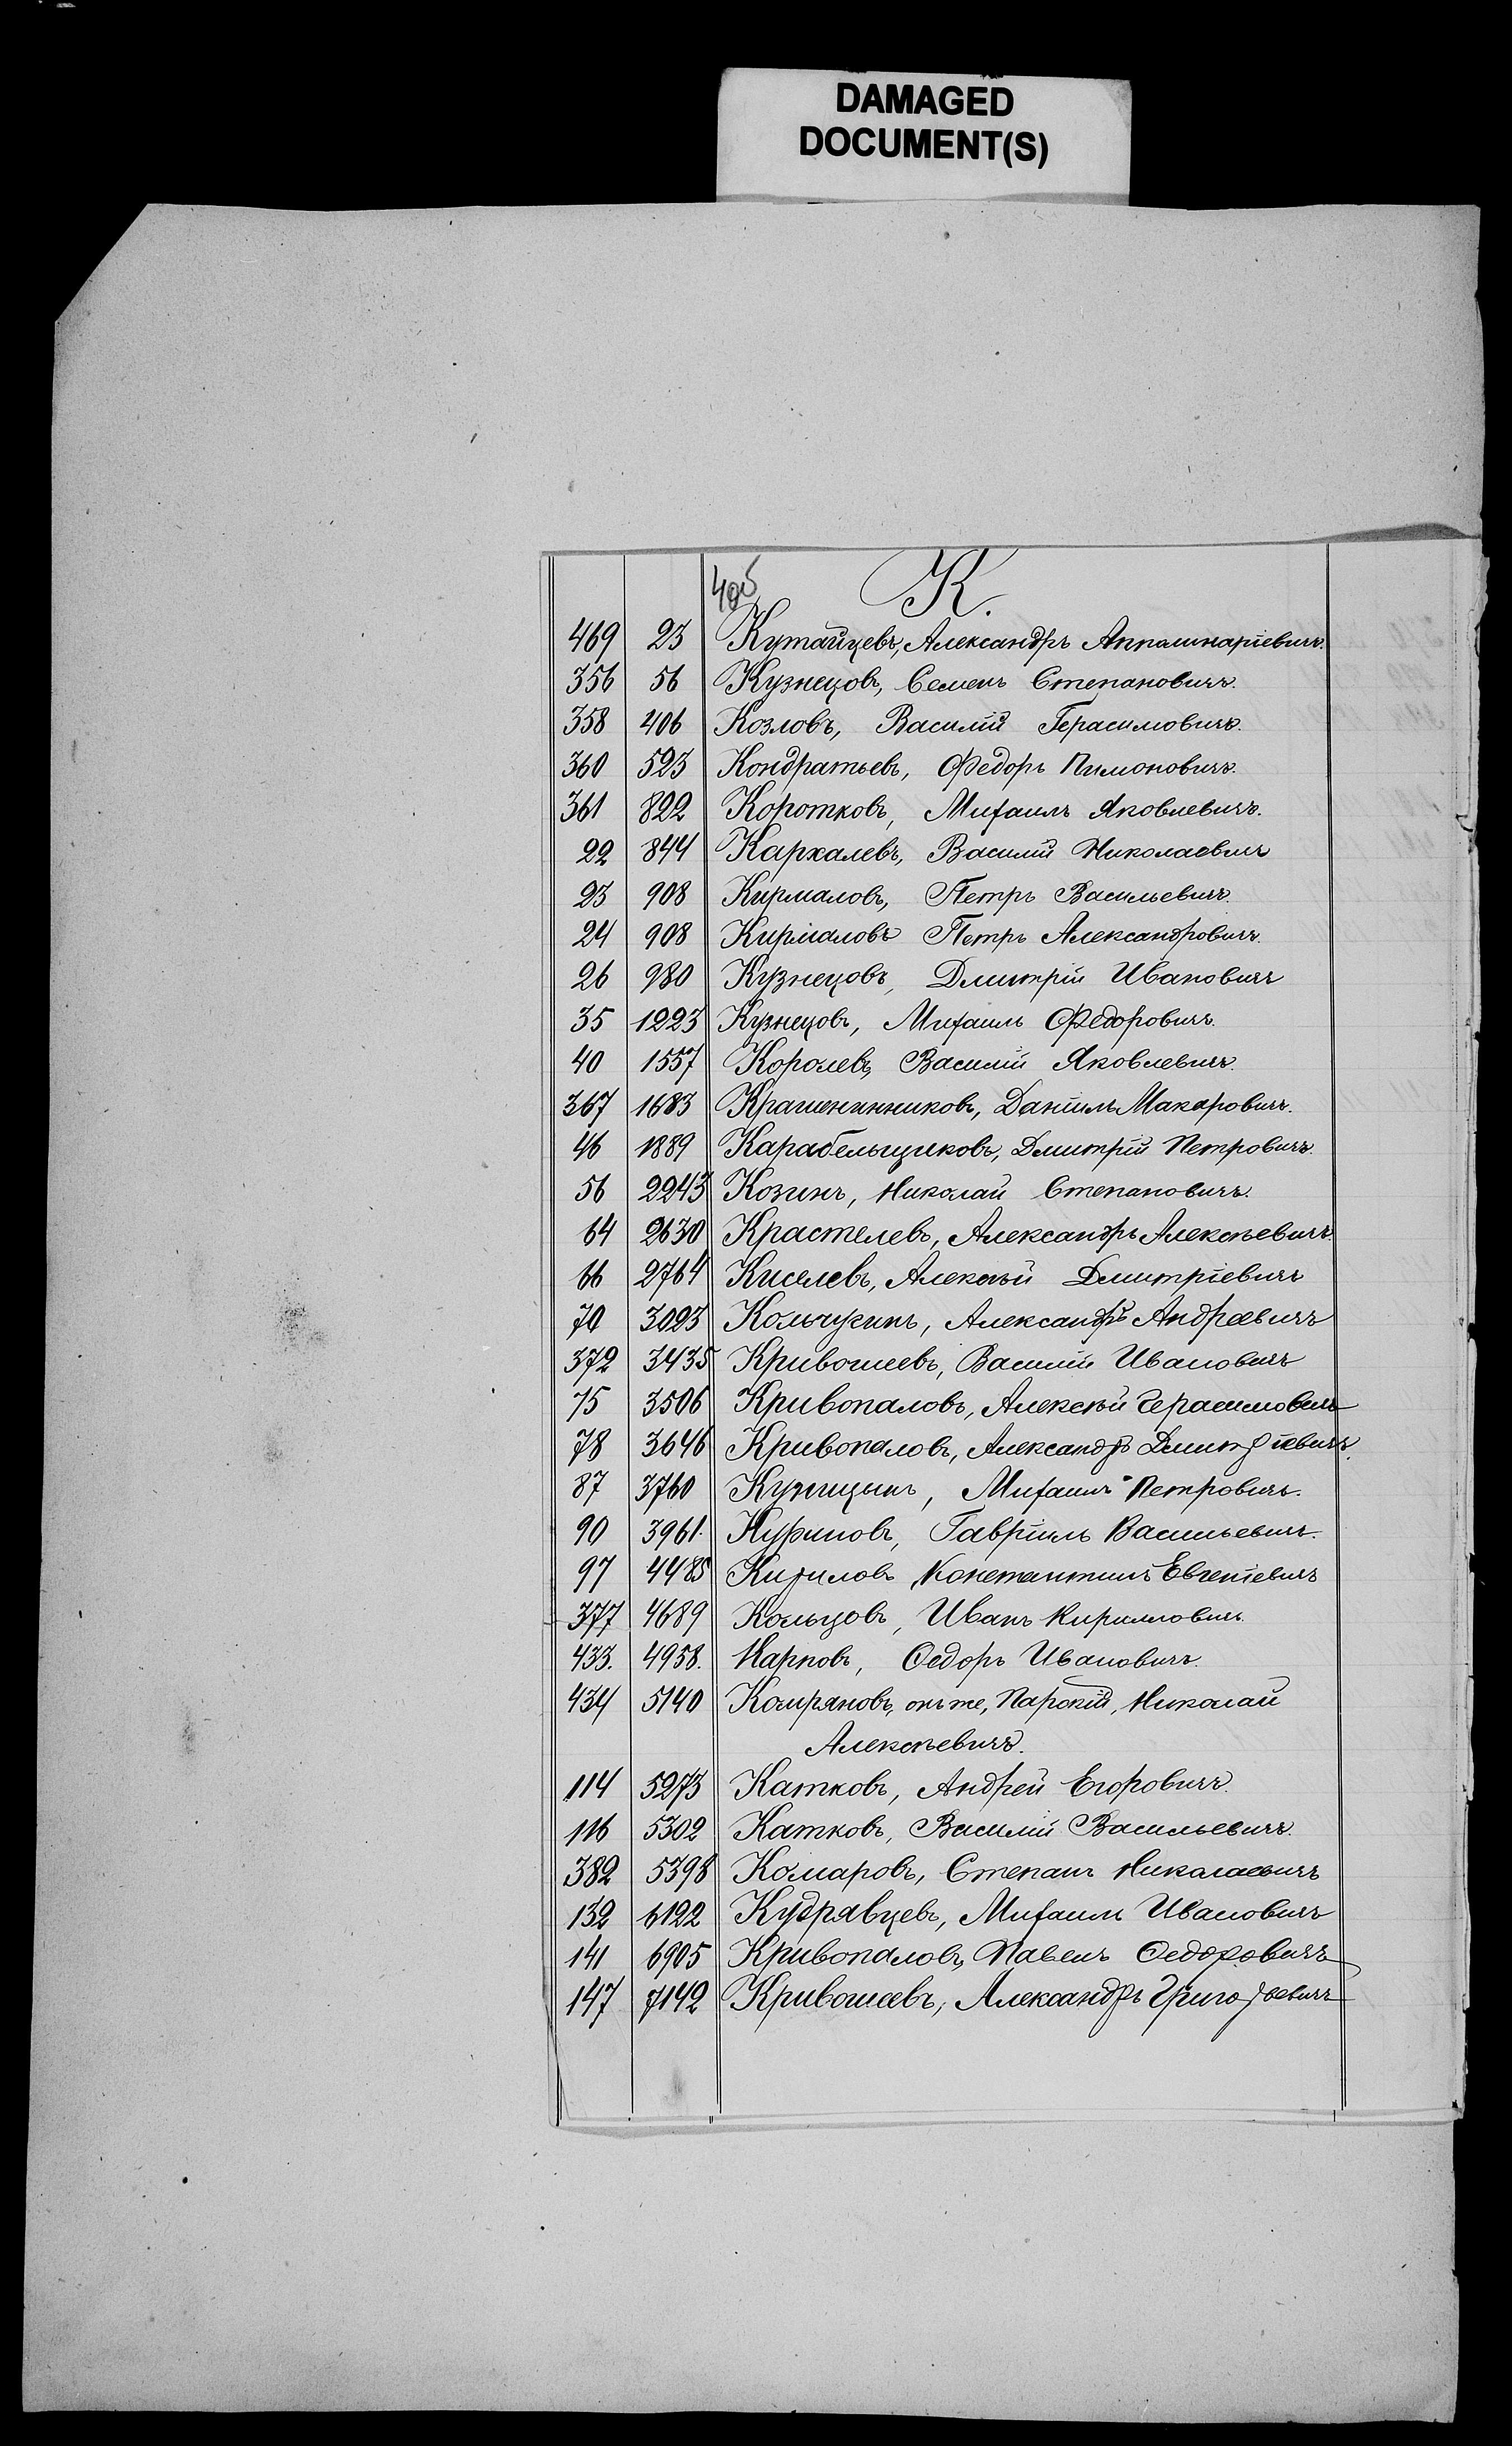 DAMAGED
DOCUMENT(S)
К.
469 23 Кутайцевъ, Александръ Апполинаріевичъ.
356 56 Кузнецовъ, Семенъ Степановичъ.
358 406 Козловъ, Василій Герасимовичъ.
360 523 Кондратьевъ, Федоръ Пимоновичъ.
361 822 Коротковъ, Михаилъ Яковлевичъ.
22 844 Каркалевъ, Василій Николаевичъ
23 908 Кирмаловъ, Петръ Васильевичъ.
24 908 Кирмаловъ Петръ Александровичъ.
26 980 Кузнецовъ, Дмитрій Ивановичъ
35 1223 Кузнецовъ, Михаилъ Федоровичъ.
40 1557 Королевъ, Василій Яковлевичъ.
367 1683 Крашенинниковъ, Даніилъ Макаровичъ.
46 1889 Карабельщиковъ, Дмитрій Петровичъ.
56 2243 Козинъ, Николай Степановичъ.
64 2630 Крастелевъ, Александръ Алексѣевичъ.
66 2764 Киселевъ, Алексѣй Дмитріевичъ
70 3023 Кольчугинъ, Александръ Андреевичъ
372 3435 Кривошеевъ, Василій Ивановичъ
75 3506 Кривопаловъ, Алексѣй Герасимовичъ
78 3646 Кривопаловъ, Александръ Дмитріевичъ.
87 3760 Куницынъ, Михаилъ Петровичъ.
90 3961. Куриловъ, Гавріилъ Васильевичъ.
97 4485 Кириловъ Константинъ Евгеніевичъ
377 4689 Кольцовъ, Иванъ Кирилловичъ
433. 4958. Карповъ, Ѳедоръ Ивановичъ.
434 5140 онъ же, Парскій, Николай
Алексѣевичъ.
114 5273 Катковъ, Андрей Егоровичъ.
116 5302 Катковъ, Василій Васильевичъ.
382 5398 Комаровъ, Степанъ Николаевичъ
132 6122 Кудрявцевъ, Михаилъ Ивановичъ
141 6905 Кривопаловъ, Павелъ Ѳедоровичъ
147 7142 Кривошеевъ, Александръ Григорьевичъ